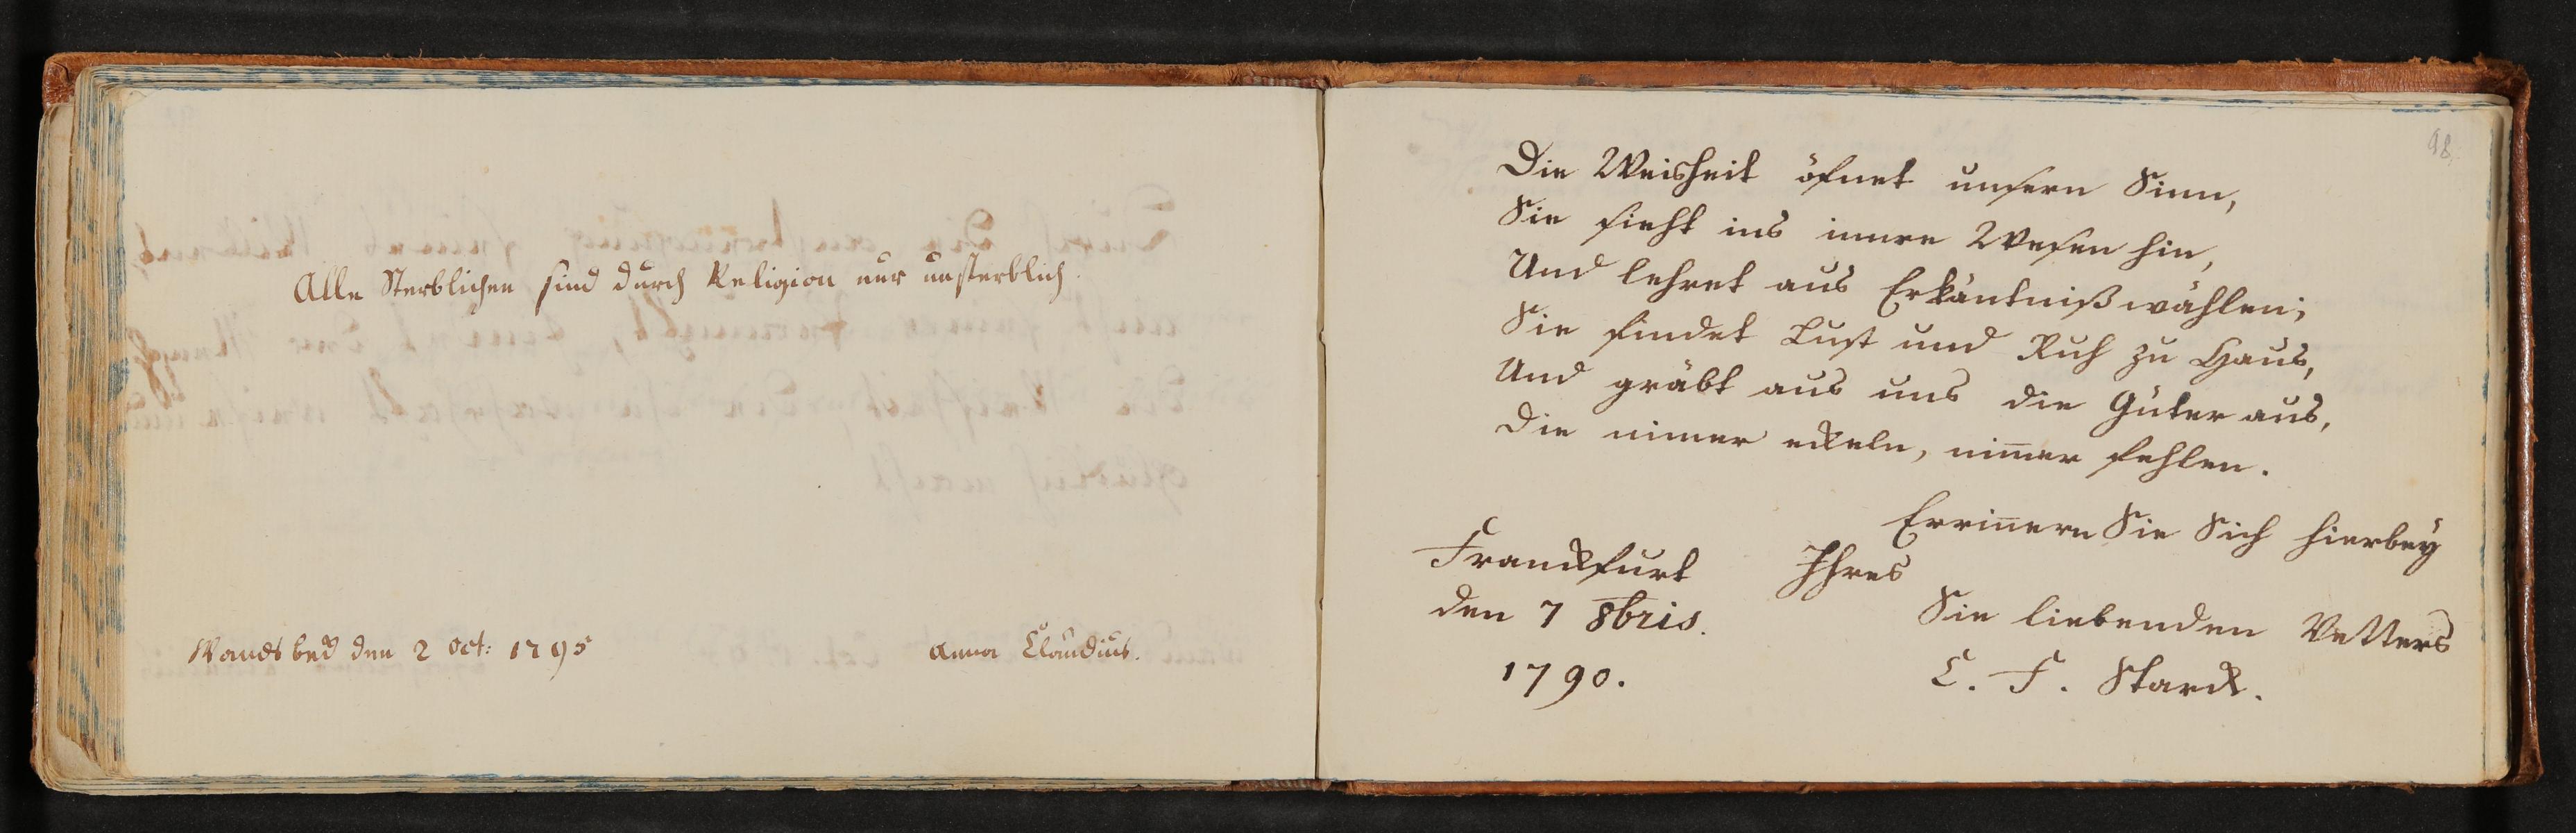 Alle Sterblichen sind durch Religion nur unsterblich.
Wandsbeck den 2 Oct: 1795
Anna Claudius.
98.
Die Weisheit öfnet unsern Sinn,
Sie sieht ins innre Wesen hin,
Und lehret aus Erkäntniß wählen;
Sie findet Lust und Ruh zu Haus,
Und gräbt aus uns die Güter aus,
Die nimer eckeln, nim̅er fehlen.
Errin̅ern Sie Sich hierbey
Ihres
Sie liebenden Vetters
C. F. Starck.
Franckfurt
den 7 8bris.
1790.